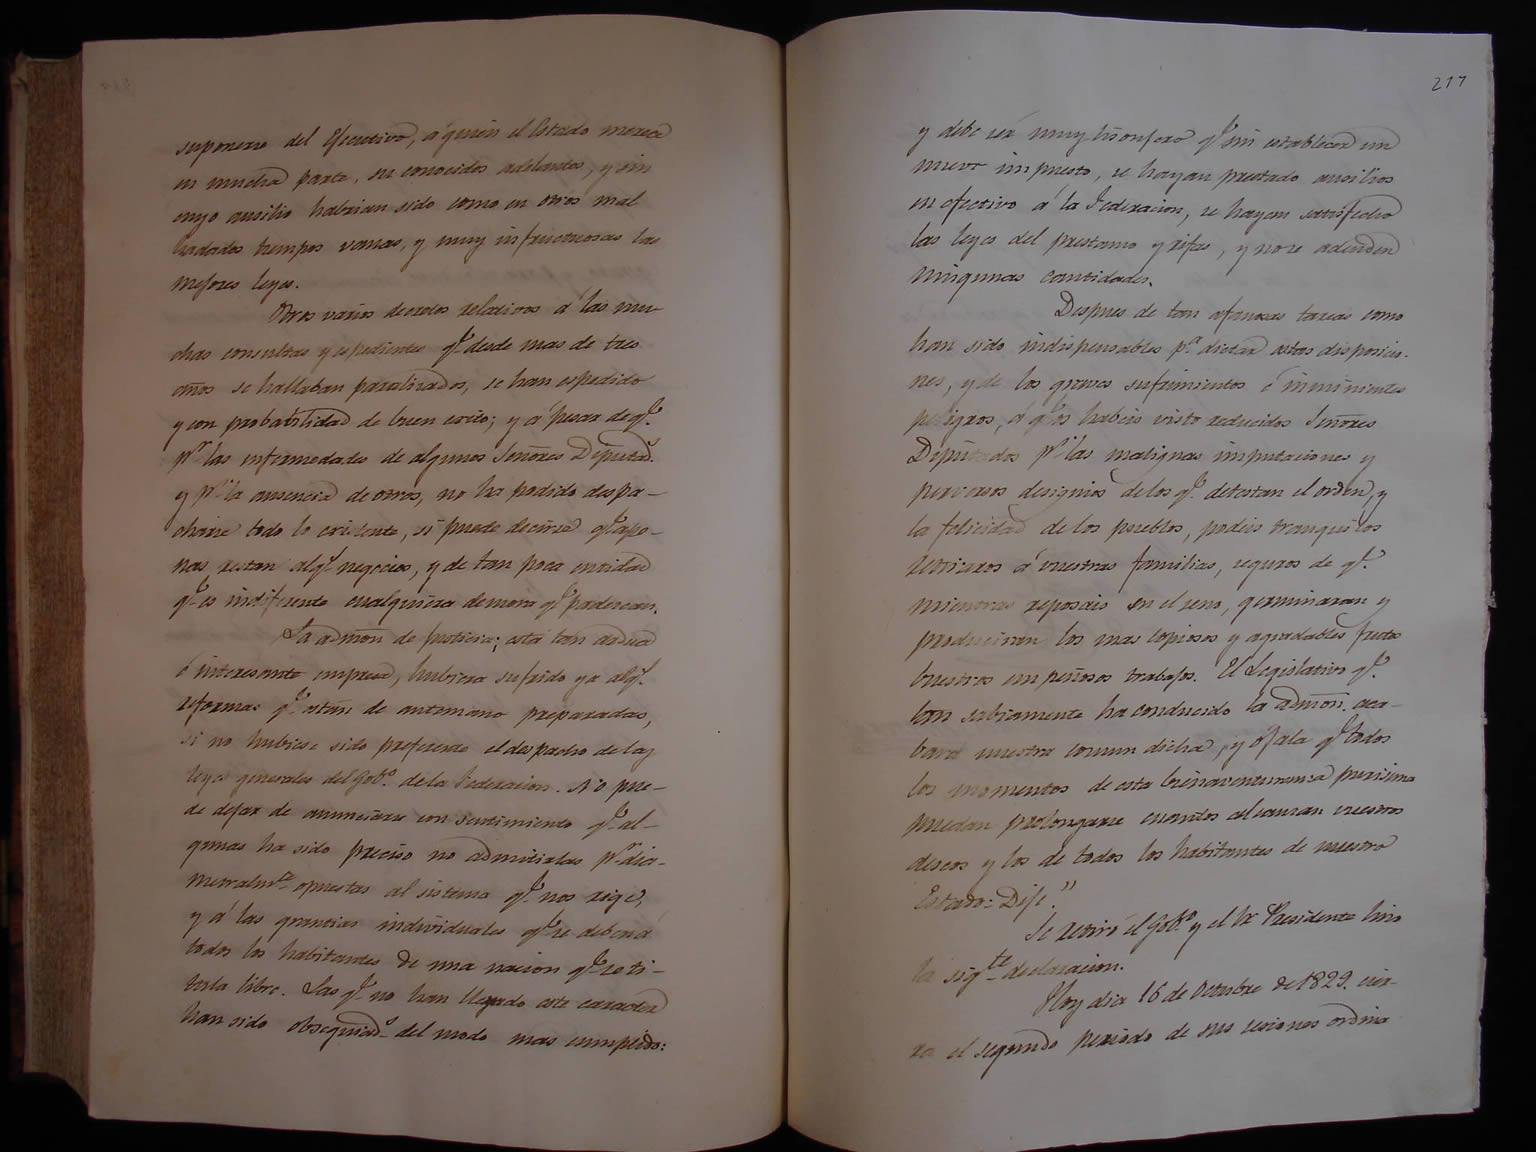 suponerse del Ejecutivo, á quien el Estado merece
en mucha parte, sus conocidos adelantos, y sin
cuyo ausilio habrian sido como en otros mal
hadados tiempos vanas, y muy infructuosas las
mejores leyes.
Otros varios decretos relativos á las mu-
chas consultas y espedientes qe. desde mas de tres
años se hallaban paralizados, se han espedido
y con probabilidad de buen ecsito; y á pesar de qe.
pr. las enfermedades de algunos Señores Diputads.
y pr. la ausencia de otros, no ha podido despa-
charse todo lo ecsistente, si puede decirse qe. ape-
nas restan algs. negocios, y de tan poca entidad
qe. es indiferente cualquiera demora qe. padezcan.
La admon. de justicia; esta tan ardua
é interesante empresa, hubiera sufrido ya algs.
reformas qe. estan de antemano preparadas,
si no hubiese sido preferente el despacho de las
leyes generales del Gobo. de la Federacion. No pue-
de dejar de anunciarse con sentimiento qe. al-
gunas ha sido preciso no admitirlas pr. dia-
metralmte. opuestas al sistema qe. nos rige,
y á las grantias individuales qe. se deben á
todos los habitantes de una nacion qe. se ti-
tula libre. Las qe. no han llegado este caracter
han sido obsequiads. del modo mas cumplido:
217
y debe ser muy lisonjero qe. sin establecer un
nuevo impuesto, se hayan prestado ausilios
en efectivo á la Federacion, se hayan satisfecho
las leyes del prestamo y rifas, y no se adeuden
ningunas cantidades.
Despues de tan afanosas tareas como
han sido indispensables pa. dictar estas disposicio-
nes, y de los graves sufrimientos é inminentes
peligros, á qe. os habeis visto reducidos Señores
Diputados pr. las malignas imputaciones y
perversos designios de los qe. detestan el orden, y
la felicidad de los pueblos, podeis tranquilos
retiraros á vuestras familias, seguros de qe.
mientras reposais en el seno, germinaran y
produciran los mas copiosos y agradables frutos
buestros empeñosos trabajos. El Legislativo qe.
tan sabiamente ha conducido la admon. aca-
bará nuestra comun dicha, y ojala qe. todos
los momentos de esta bienaventuranza purisima
puedan prolongarse cuantos alcanzan vuestros
deseos y los de todos los habitantes de nuestro
Estado: Dije."
Se retiró el Gobo. y el Sr Presidente hizo
la sigte. declaracion.
Hoy dia 16 de Octubre de 1829. cier-
ra el segundo periodo de sus sesiones ordina